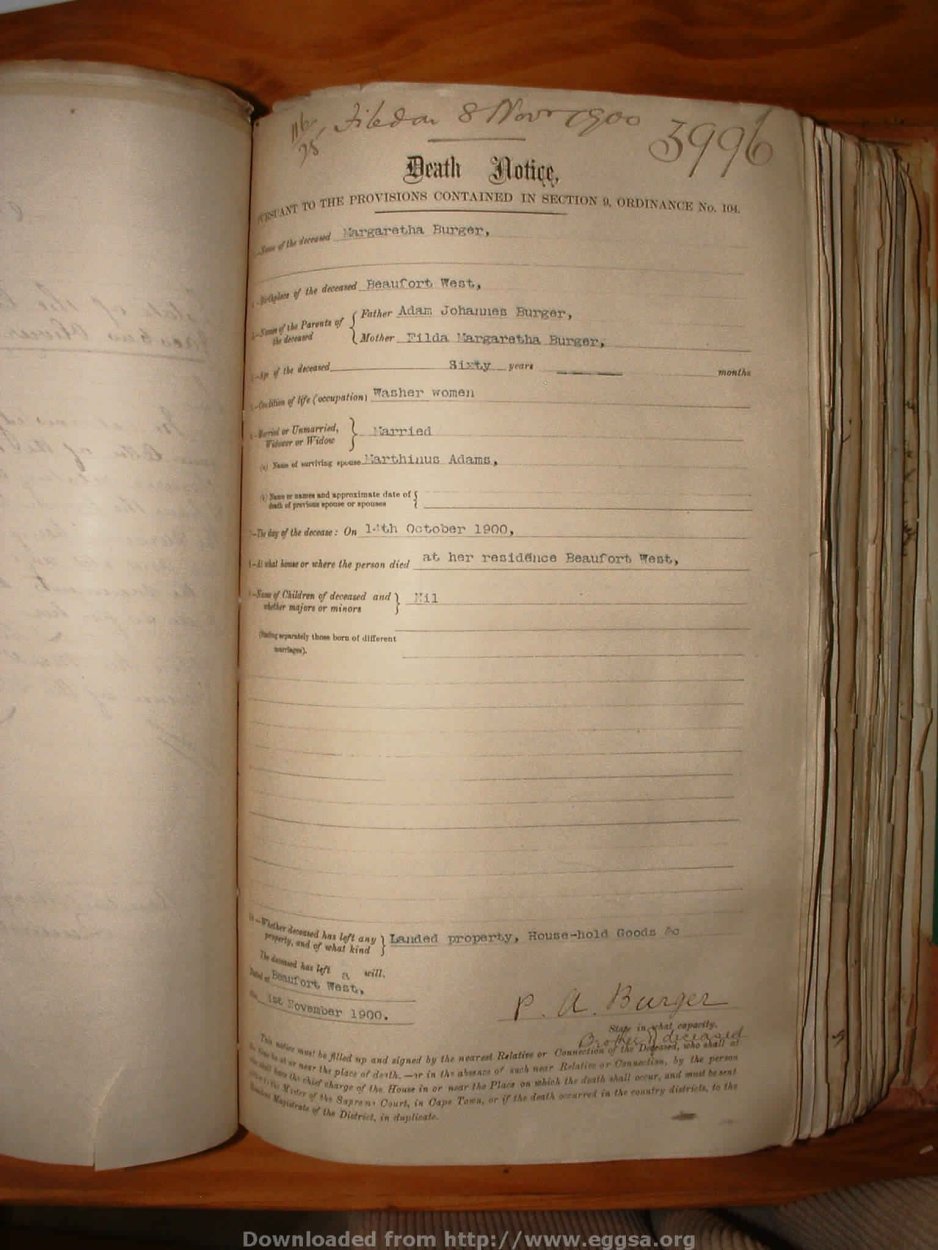 116/25 Filed on 8 Novr 1900 3996
Death Notice,
PURSUANT TO THE PROVISIONS CONTAINED IN SECTION 9, ORDINANCE No. 104.
—Name of the deceased Margaretha Burger,
—Birthplace of the deceased Beaufort West,
—Names of the Parents of the deceased { Father Adam Johannes Burger,
Mother Filda Margaretha Burger,
—Age of the deceased Sixty years months
—Condition of life (occupation) Washer women
—Married or Unmarried, Widower or Widow } Married
(a) Name of surviving spouse Marthinus Adams,
(b) Name or names and approximate date of death of previous spouse or spouses {
—The day of the decease: On 14th October 1900,
—At what house or where the person died at her residence Beaufort West,
—Name of Children of deceased and whether majors or minors } Nil
(Stating separately those born of different marriages).
10.—Whether deceased has left any property, and of what kind } Landed property, House-hold Goods &c
The deceased has left a will.
Dated at Beaufort West,
the 1st November 1900.
P. A. Burger
State in what capacity.
Brother of deceased
This notice must be filled up and signed by the nearest Relative or Connection of the Deceased, who shall at
the time be at or near the place of death,—or in the absence of such near Relative or Connection, by the person
who shall have the chief charge of the House in or near the Place on which the death shall occur, and must be sent
to the Master of the Supreme Court, in Cape Town, or if the death occurred in the country districts, to the
Resident Magistrate of the District, in duplicate.
Downloaded from http://www.eggsa.org